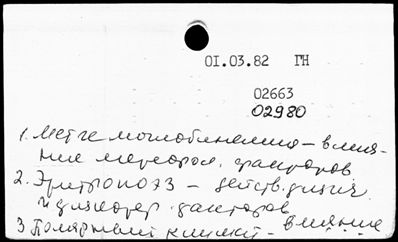 01.03.82 ГН
02663
02980
1. Метгемоглобинемия – влия-
ние метеорол. факторов
2. Эритропоэз – действ. физич.
и физиотер. факторов
3 Полярный климат – влияние